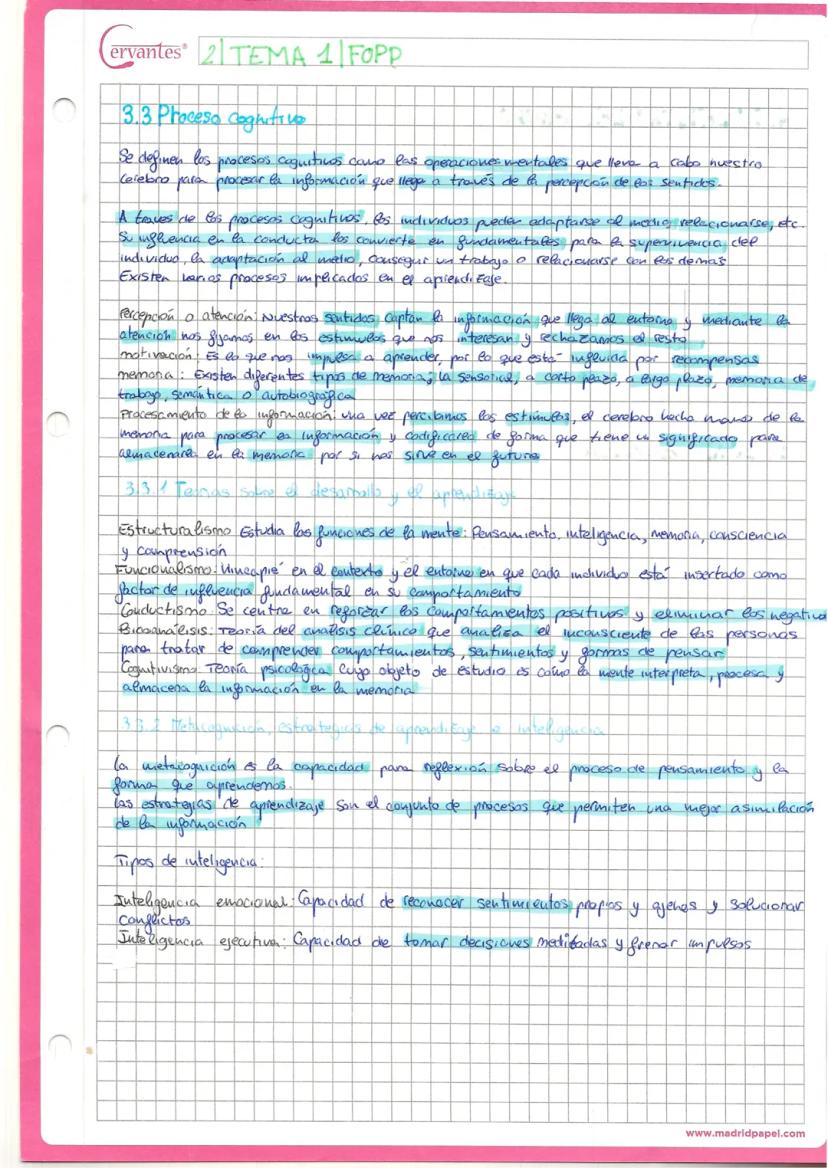 Cervantes®
2|TEMA 1|FOPP
3.3 Proceso cognitivo
Se definen los procesos cognitivos como las operaciones mentales que lleva a cabo nuestro
cerebro para procesar la información que llega a través de la percepción de los sentidos.
A traves de los procesos cognitivos, los individuos pueden adaptarse al medio, relacionarse, etc.
Su influencia en la conducta los convierte en fundamentales para la supervivencia del
individuo, la adaptación al medio, conseguir un trabajo o relacionarse con los demas
Existen varios procesos implicados en el aprendizaje.
Percepción o atención: Nuestros sentidos captan la información que llega al entorno y mediante la
atención nos fijamos en los estimulos que nos interesan y rechazamos el resto
motivación: Es lo que nos impulsa a aprender, por lo que está influida por recompensas
memoria: Existen diferentes tipos de memoria; la sensorial, a corto plazo, a largo plazo, memoria de
trabajo, semántica o autobiográfica
Procesamiento de la información: una vez percibimos los estimulos, el cerebro hecha mano de la
memoria para procesar la información y codificarla de forma que tiene un significado para
almacenarla en la memoria por si nos sirve en el futuro
3.3.1 Teorias sobre el desarrollo y el aprendizaje
Estructuralismo Estudia las funciones de la mente: Pensamiento, inteligencia, memoria, consciencia
y comprensión
Funcionalismo: Hincapié en el contexto y el entorno en que cada individuo está insertado como
factor de influencia fundamental en su comportamiento
Conductismo: Se centra en reforzar los comportamientos positivos y eliminar los negativos
Psicoanálisis: Teoría del analisis clínico que analiza el inconsciente de las personas
para tratar de comprender comportamientos, sentimientos y formas de pensar
Cognitivismo: Teoría psicologica cuyo objeto de estudio es cómo la mente interpreta, procesa y
almacena la información en la memoria
3.3.2 Metacognición, estrategias de aprendizaje e inteligencia
La metacognición es la capacidad para reflexión sobre el proceso de pensamiento y la
forma que aprendemos.
Las estrategias de aprendizaje son el conjunto de procesos que permiten una mejor asimilación
de la información
Tipos de inteligencia:
Inteligencia emocional: Capacidad de reconocer sentimientos propios y ajenos y solucionar
conflictos
Inteligencia ejecutiva: Capacidad de tomar decisiones meditadas y frenar impulsos
www.madridpapel.com